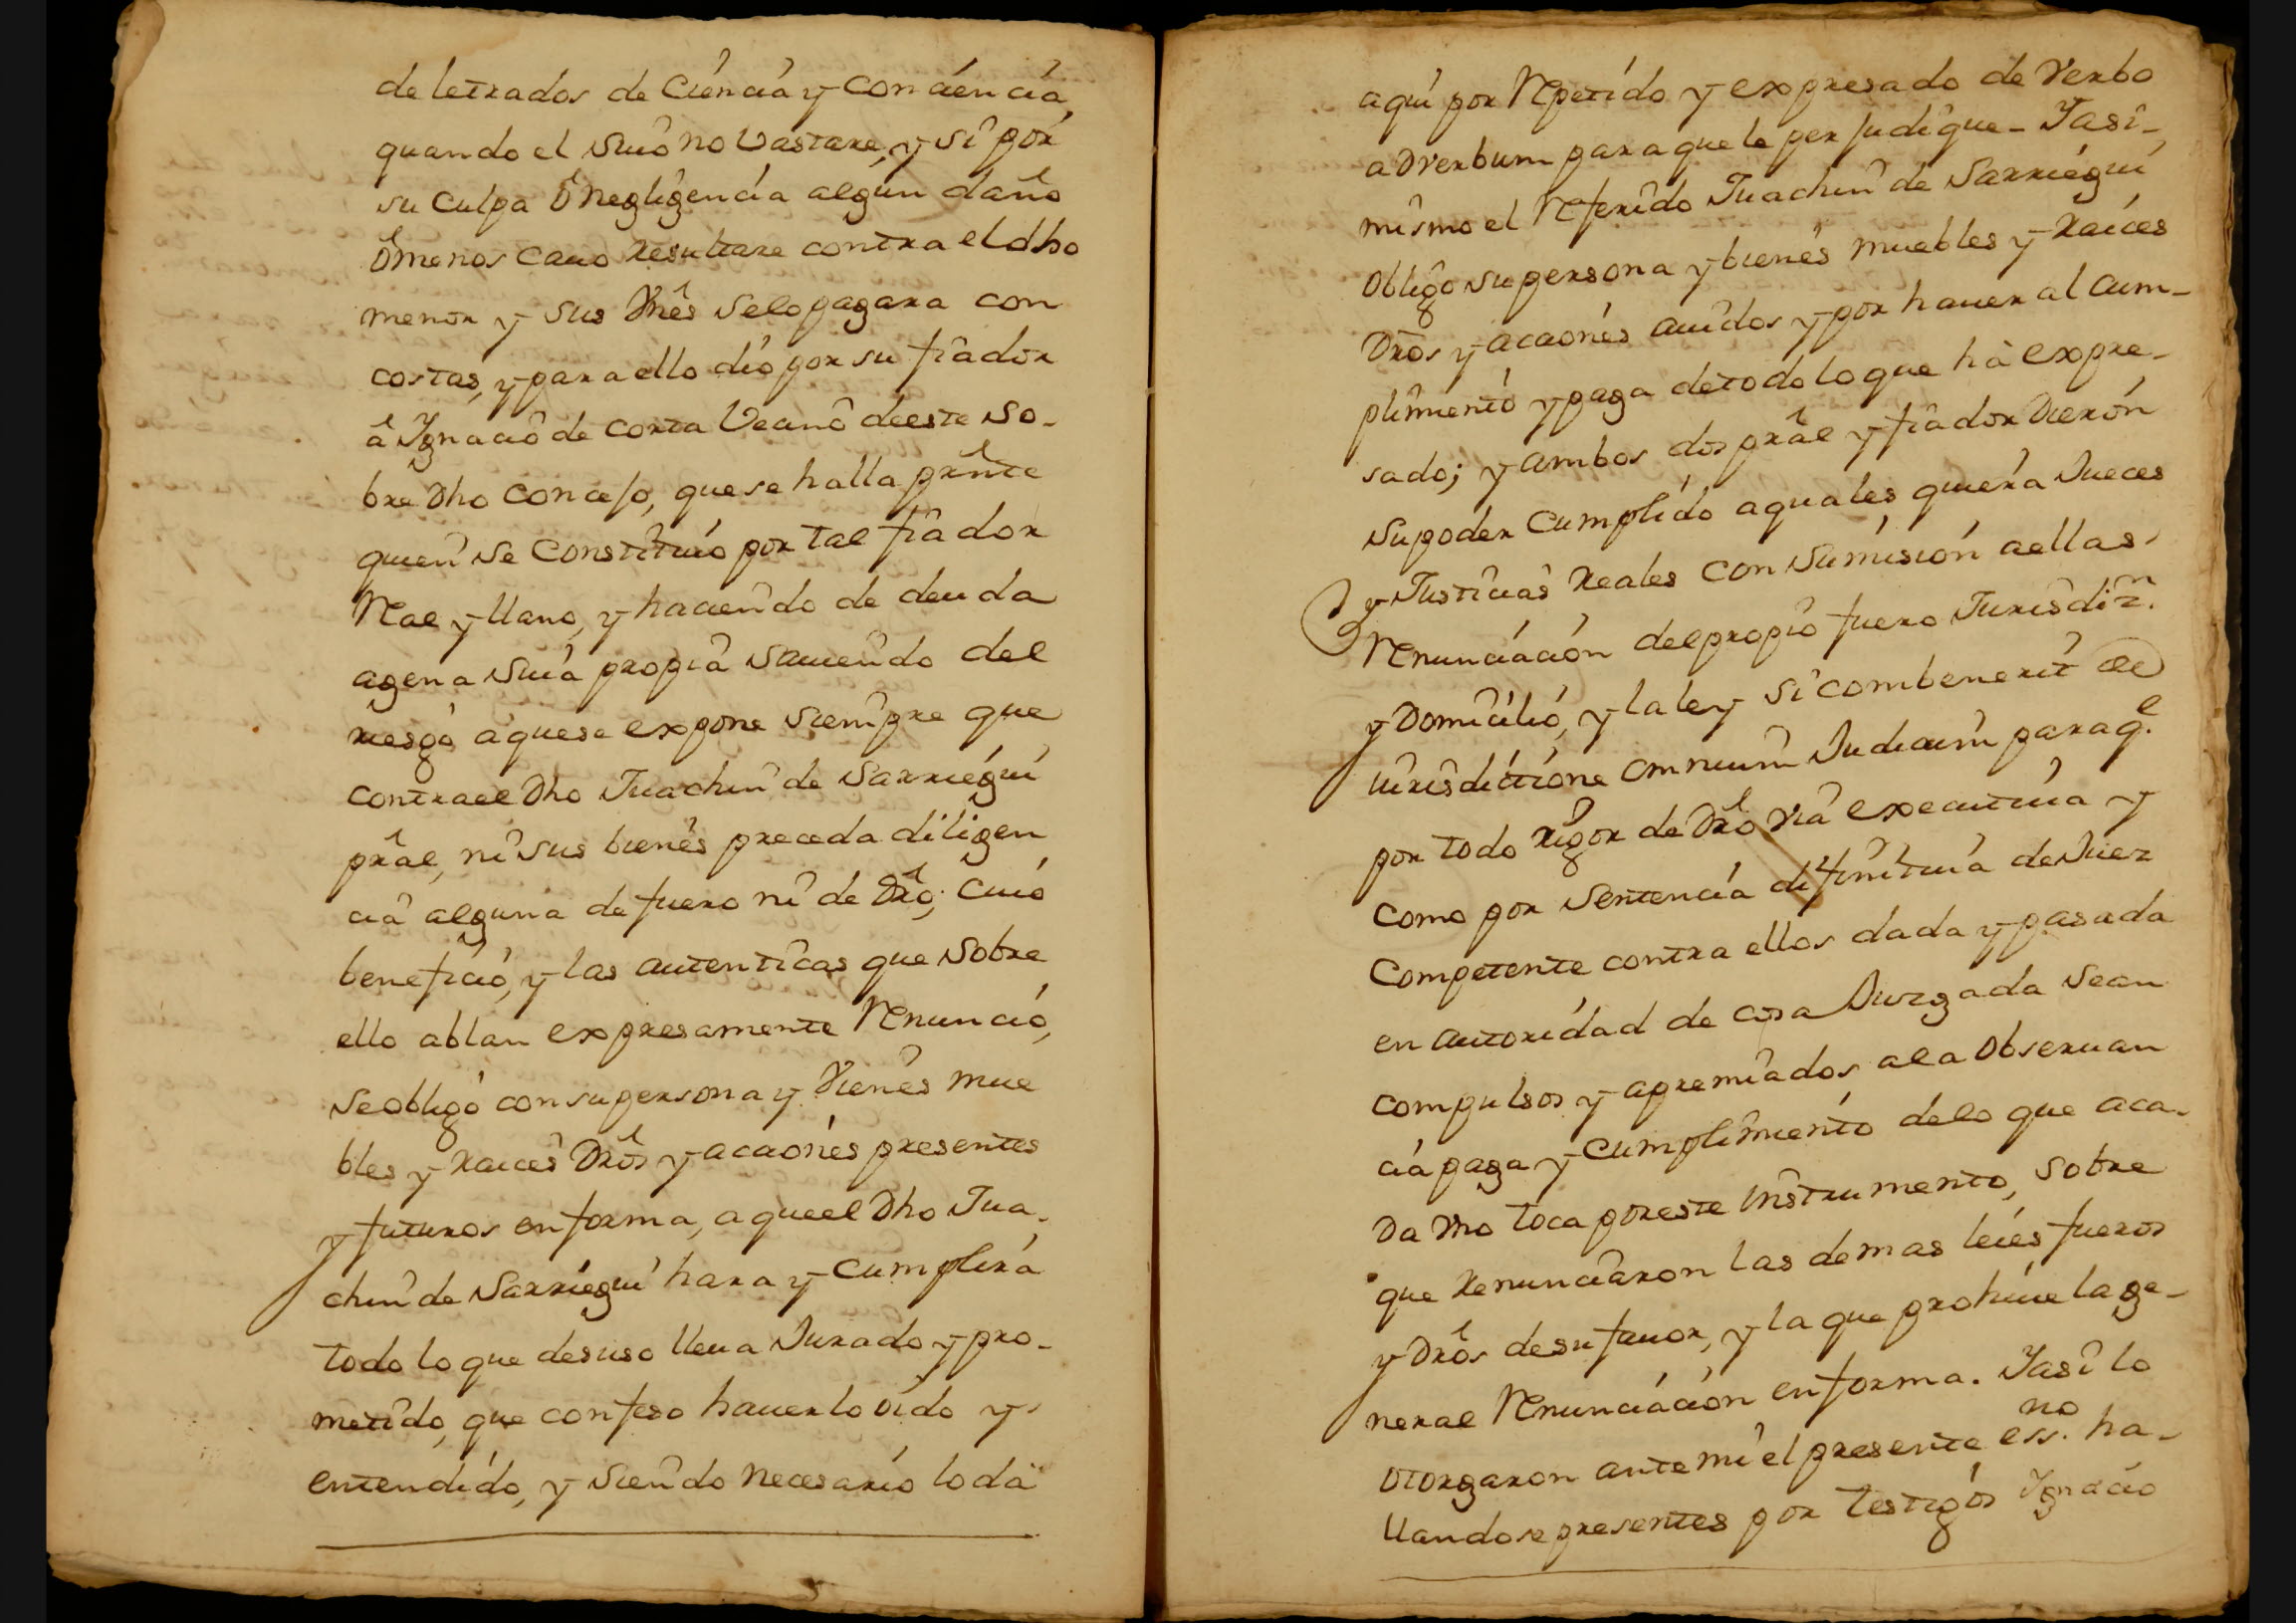 de letrados de Ciencia y Conciencia
quando el suio no Vastare, y si por
su Culpa ô negligencia algun daño
ô menos cauo Resultare contra el dho
menor y sus Vnês se lo pagara con
costas, y para ello dió por su fiador
â Ygnacio de Corta Vecino de este So-
bre Dho Concejo, que se halla prnte
quien se Constituió por tal fiador
Real y llano, y haciendo de deuda
agena suia propia sauiendo del
riesgo a que se expone siempre que
contra el Dho Juachin de Sarriegui
prâl, ni sus bienes preceda diligen
cia alguna de fuero ni de Drô; Cuio
beneficio, y las autenticas que sobre
ello ablan expresamente Renunció,
se obligó con su persona y Vienes mue
bles y Raices Drôs y acciones presentes
y futuros en forma, a que el Dho Jua-
chin de Sarriegui hara y Cumplira
todo lo que desuso lleua Jurado y pro-
metido, que confeso hauerlo oido y
entendido, y siendo necesario lo dà
aqui por Repetido y expresado de Verbo
ad Verbum para que le perjudique - Yasi-
mismo el Referido Juachin de Sarriegui
obligo su persona y bienes muebles y Raices
Drôs y acciones auidos y por hauer al Cum-
plimiento y paga de todo lo que hà expre-
sado; y ambos dos prâl y fiador Dieron
su poder Cumplido a quales quiera Jueces
y Justicias Reales con Sumision a ellas
Renunciacion del propio fuero Jurisdizn.
y Domicilio, y la ley si combenerit de
iurisdictione omnium Judicum para qe.
por todo rigor de Drô via executiua y
como por Sentencia difinitiua de Juez
Competente contra ellos dada y pasada
en autoridad de cosa Juzgada sean
compulsos y apremiados a la Obseruan
cia paga y Cumplimiento de lo que aca-
Da Vno toca por este Instrumento, sobre
que Renunciaron las demas leies fueros
y Drôs de su fauor, y la que prohiue la ge-
neral Renunciacion en forma. Yasi lo
otorgaron ante mi el presente essno. ha-
llandose presentes por testigos Ygnacio